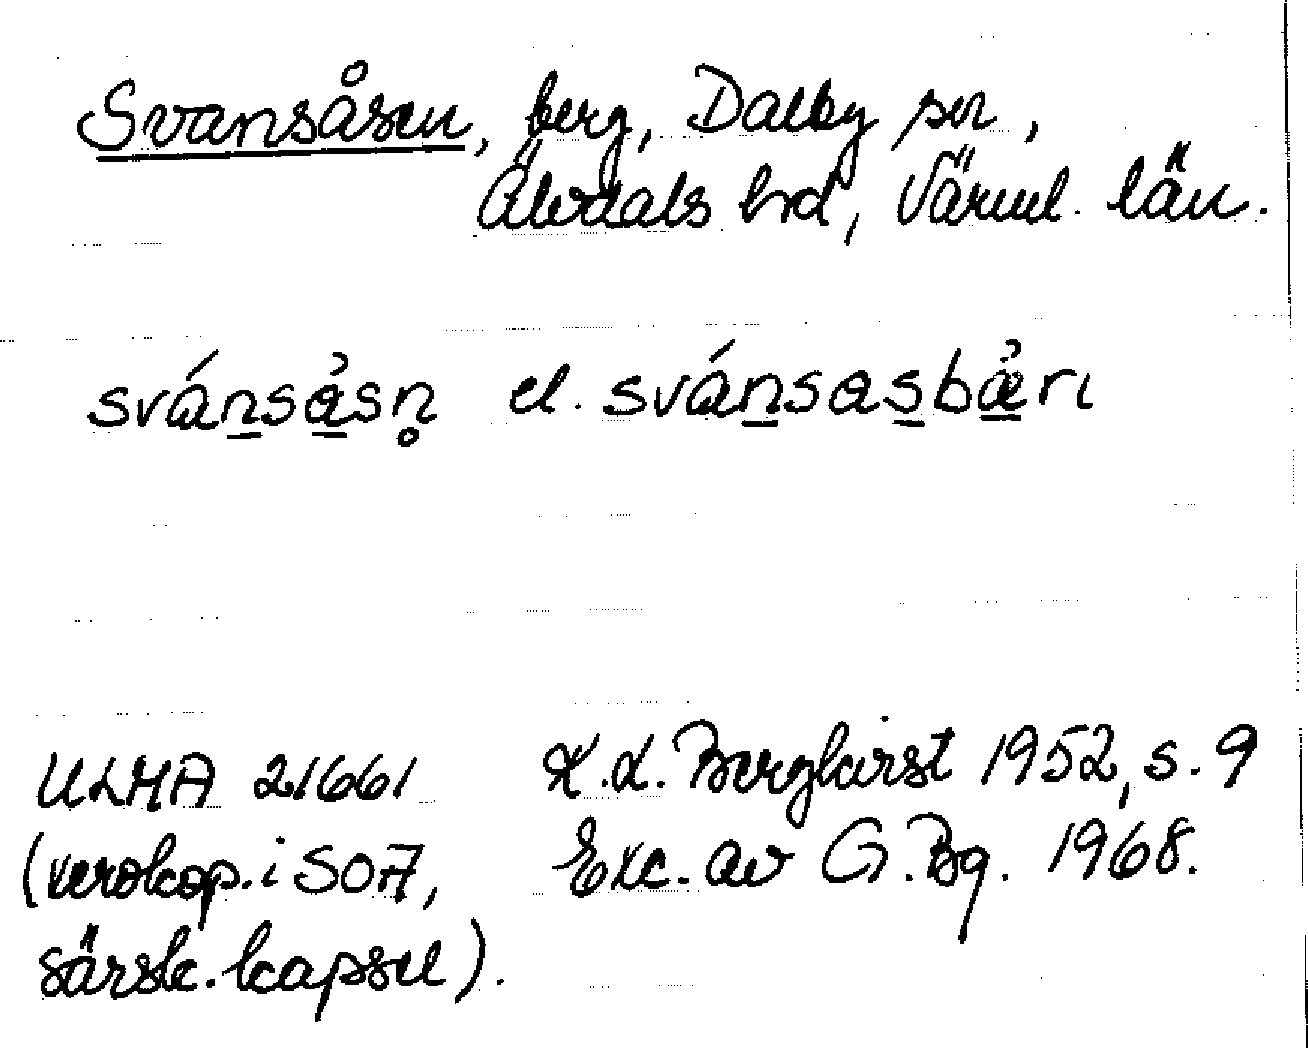 Svansåsen, berg, Dalby sn,
Älvdals hd, Värml. län.
svánsåsn̥ el. svánsasbæ̉rı
ULMA 21661 K.L. Bergkvist 1952, s. 9
(xerokop. i SOA, Exc. av G. Bg. 1968.
särsk. kapsel).